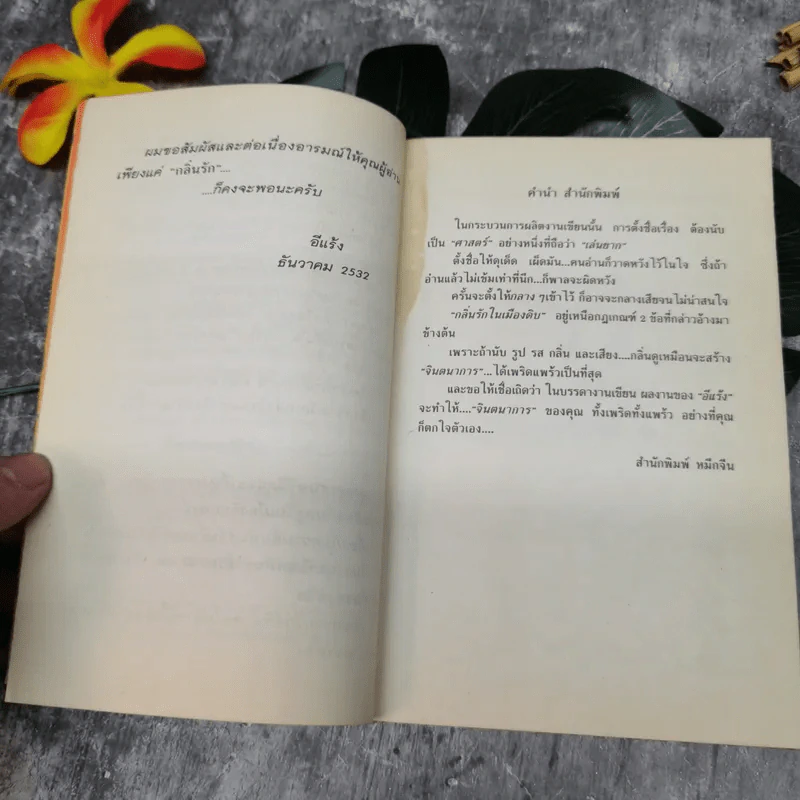 ผมขอสัมผัสและต่อเนื่องอารมณ์ให้คุณผู้อ่าน
เพียงแค่ "กลิ่นรัก"....
....ก็คงจะพอนะครับ
อีแร้ง
ธันวาคม 2532
คำนำ สำนักพิมพ์
ในกระบวนการผลิตงานเขียนนั้น การตั้งชื่อเรื่อง ต้องนับ
เป็น "ศาสตร์" อย่างหนึ่งที่ถือว่า "เล่นยาก"
ตั้งชื่อให้ดุเด็ด เผ็ดมัน...คนอ่านก็วาดหวังไว้ในใจ ซึ่งถ้า
อ่านแล้วไม่เข้มเท่าที่นึก...ก็พาลจะผิดหวัง
ครั้นจะตั้งให้กลาง ๆเข้าไว้ ก็อาจจะกลางเสียจนไม่น่าสนใจ
"กลิ่นรักในเมืองดิบ" อยู่เหนือกฎเกณฑ์ 2 ข้อที่กล่าวอ้างมา
ข้างต้น
เพราะถ้านับ รูป รส กลิ่น และเสียง....กลิ่นดูเหมือนจะสร้าง
"จินตนาการ"...ได้เพริดแพร้วเป็นที่สุด
และขอให้เชื่อเถิดว่า ในบรรดางานเขียน ผลงานของ "อีแร้ง"
จะทำให้...."จินตนาการ" ของคุณ ทั้งเพริดทั้งแพร้ว อย่างที่คุณ
ก็ตกใจตัวเอง....
สำนักพิมพ์ หมึกจีน